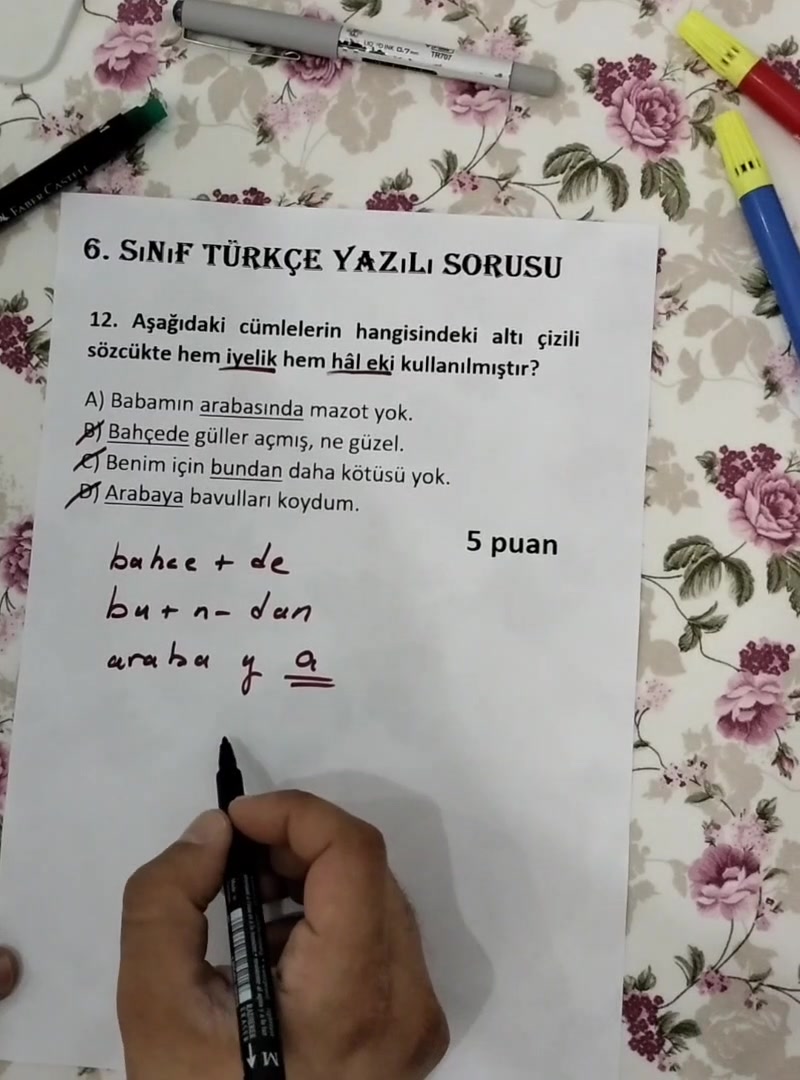 UQ NK 0.7
TR707
FABER CASTELL
6. SıNıF TÜRKÇE YAZıLı SORUSU
12. Aşağıdaki cümlelerin hangisindeki altı çizili
sözcükte hem iyelik hem hâl eki kullanılmıştır?
A) Babamın arabasında mazot yok.
B) Bahçede güller açmış, ne güzel.
C) Benim için bundan daha kötüsü yok.
D) Arabaya bavulları koydum.
5 puan
bahce + de
bu + n - dan
araba y a
M